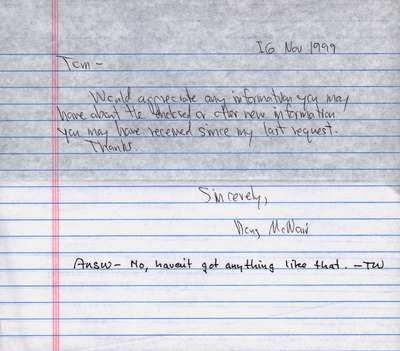 16 Nov 1999
Tom -
Would appreciate any information you may
have about the enclosed or other new information
you may have received since my last request.
Thanks.
Sincerely,
Doug McNair
Answ - No, haven't got anything like that. - TW